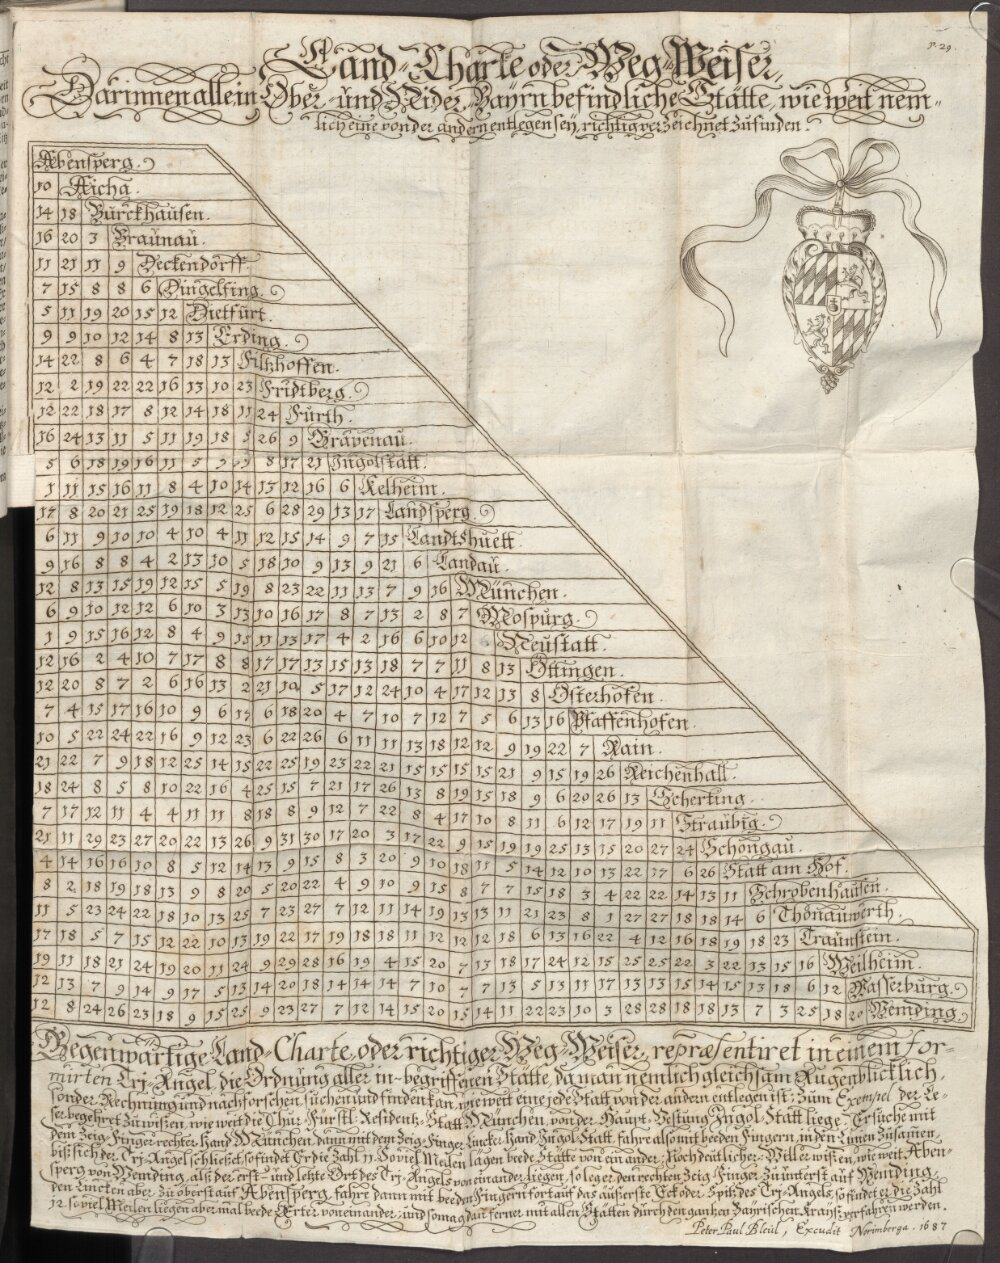 P. 29.
Land-Charte oder Weg-Weiser,
Darinnen alle in Ober- und Nider-Bayrn befindliche Stätte, wie weit nem-
lich eine von der andern entlegen sey, richtig verzeichnet zufinden.
Abensperg.
10 Aicha.
14 18 Burckhausen.
16 20 3 Braunau.
11 21 11 9 Deckendorff.
7 15 8 8 6 Dingelfing.
5 11 19 20 15 12 Dietfurt.
9 9 10 12 14 8 13 Erding.
14 22 8 6 4 7 18 13 Filtzhoffen.
12 2 19 22 22 16 13 10 23 Fridtberg.
12 22 18 17 8 12 14 18 11 24 Furth.
16 24 13 11 5 11 19 18 5 26 9 Gravenau.
5 6 18 19 16 11 5 8 17 21 Ingolstatt.
1 11 15 16 11 8 4 10 14 13 12 16 6 Kelheim.
17 8 20 21 25 19 18 12 25 6 28 29 13 17 Landsperg.
6 11 9 10 10 4 10 4 11 12 15 14 9 7 15 Landtshuett.
9 16 8 8 4 2 13 10 5 18 10 9 13 9 21 6 Landau.
12 8 13 15 19 12 15 5 19 8 23 22 11 13 7 9 16 München.
6 9 10 12 12 6 10 3 13 10 16 17 8 7 13 2 8 7 Mospurg.
1 9 15 16 12 8 4 9 15 11 13 17 4 2 16 6 10 12 Neustatt.
12 16 2 4 10 7 17 8 8 17 17 13 15 13 18 7 7 11 8 13 Öttingen.
12 20 8 7 2 6 16 13 2 21 10 5 17 12 24 10 4 17 12 13 8 Osterhofen.
7 4 15 17 16 10 9 6 17 6 18 20 4 7 10 7 12 7 5 6 13 16 Pfaffenhofen.
10 5 22 24 22 16 9 12 23 6 22 26 6 11 11 13 18 12 12 9 19 22 7 Rain.
21 22 7 9 18 12 25 14 15 22 25 19 23 22 21 15 15 15 15 21 9 15 19 26 Reichenhall.
18 24 8 5 8 10 22 16 4 25 15 7 21 17 26 13 8 19 15 18 9 6 20 26 13 Scherting.
7 17 12 11 4 4 11 11 8 18 8 9 12 7 22 8 4 17 10 8 11 6 12 17 19 11 Straubig.
21 11 29 23 27 20 22 13 26 9 31 30 17 20 3 17 22 9 15 19 19 25 13 15 20 27 24 Schongau.
4 14 16 16 10 8 5 12 14 13 9 15 8 3 20 9 10 18 11 5 14 12 10 13 22 17 6 26 Statt am Hof.
8 2 18 19 18 13 9 8 20 5 20 22 4 9 10 9 15 8 7 7 15 18 3 4 22 22 14 13 11 Schrobenhausen.
11 5 23 24 22 18 10 13 25 7 23 27 7 12 11 14 19 13 13 11 21 23 8 1 27 27 18 18 14 6 Thonauwerth.
17 18 5 7 15 12 22 10 13 19 22 17 19 18 18 11 12 12 12 18 6 13 16 22 4 12 16 18 19 18 23 Traunstein.
19 11 18 21 24 19 20 11 24 9 29 28 16 19 4 15 20 7 13 18 17 24 12 15 25 25 22 3 22 13 15 16 Weilheim.
12 13 7 9 14 9 17 5 13 14 20 18 14 14 14 7 10 7 7 13 5 13 11 17 13 13 15 14 15 13 18 6 12 Wasserburg.
12 8 24 26 23 18 9 15 25 9 23 27 7 12 14 15 20 15 14 11 22 23 10 3 28 28 18 18 13 7 3 25 18 20 Wemding.
Gegenwärtige Land-Charte, oder richtiger Weg-Weiser, repræsentiret in einem for-
mirten Tri-Angel, die Ordnung aller in-begriffenen Stätte, da man nemlich gleichsam Augenblicklich,
sonder Rechnung und nachforschen, suchen und finden kan, wie weit eine jede Statt von der andern entlegen ist: Zum Exempel der Le-
ser begehret zu wissen, wie weit die Chur-Fürstl. Residentz-Statt München, von der Haupt-Vestung Ingol-Statt liege. Er suche mit
dem Zeig-Finger rechter Hand München, dann mit dem Zeig-Finger Lincker Hand Ingol-Statt, fahre also mit beeden Fingern, in den Linien zusamen,
biß sich der Tri-Angel schliesset, so findet Er die Zahl 11. Soviel Meilen lägen beede Stätte von einander. Noch deutlicher: Will er wissen, wie weit Aben-
sperg von Wemding, als der erst- und letzte Ort des Tri-Angels von einander liegen, so lege er den rechten Zeig-Finger zu unterst auf Wemding,
den Lincken aber zu oberst auf Abensperg, fahre dann mit beeden Fingern fort auf das äuserste Eck oder Spitz des Tri-Angels, so findet er die Zahl
12. so viel Meilen liegen abermal beede Örter voneinander; und so mag dann ferner mit allen Stätten durch den gantzen Bayrischen Krayß verfahren werden.
Peter Paul Bleul, Excudit Norimberga. 1687